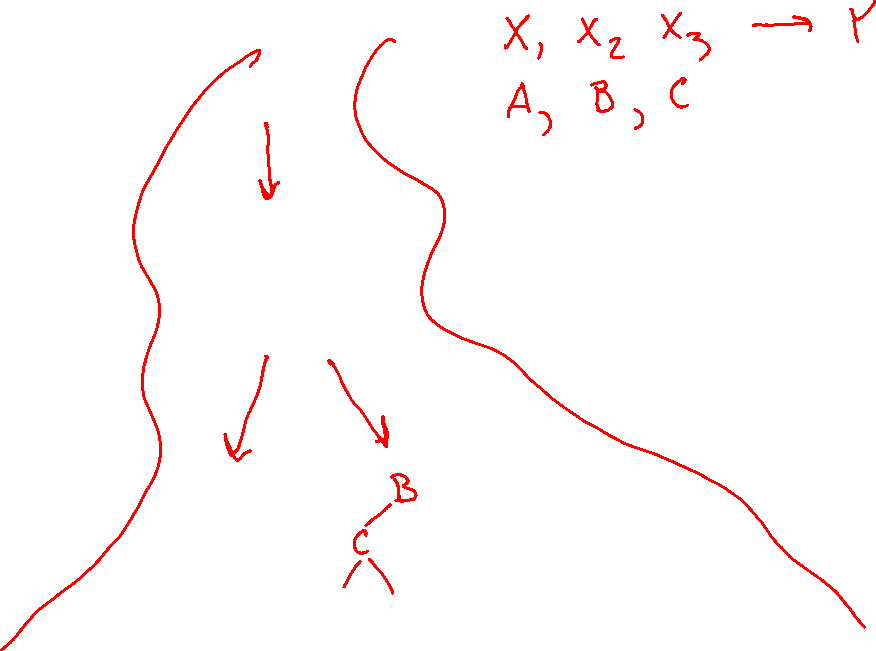 X, X2 X3, → Y
A, B, C
B
C